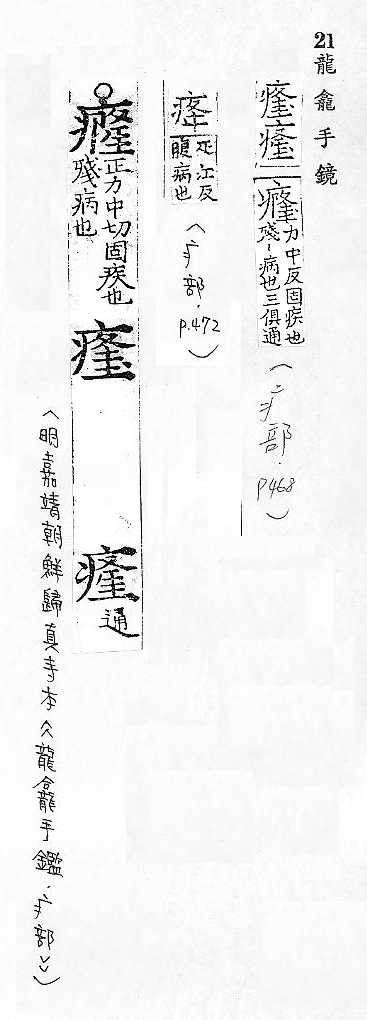 21 龍龕手鏡
癃
力中反固疾也
殘〡病也三俱通
（疒部．p468）
疋江反
腹病也
（疒部．p.472）
癃
正力中切固疾也
殘病也
通
（明嘉靖朝鮮歸真寺本《龍龕手鑑．疒部》）